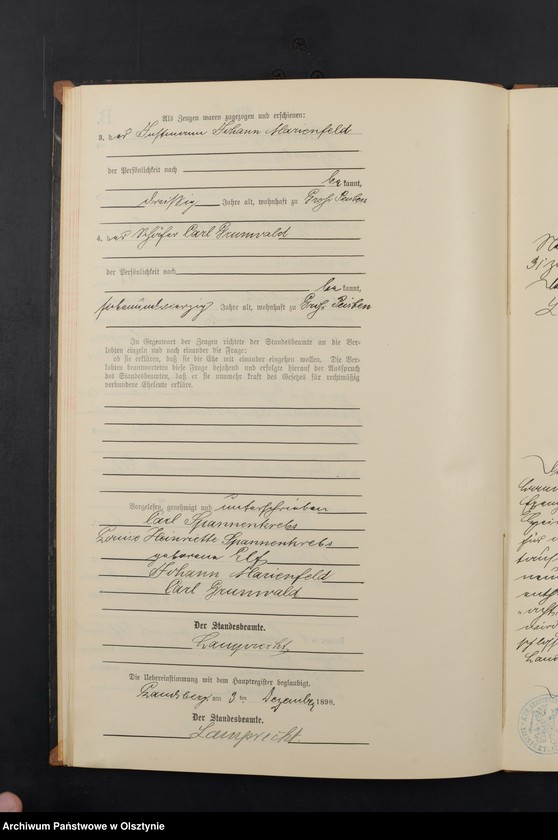 Als Zeugen waren zugezogen und erschienen:
3. der Instmann Johann Marienfeld
der Persönlichkeit nach
be kannt,
dreißig Jahre alt, wohnhaft zu Groß Peisten
4. der Schäfer Carl Grunwald
der Persönlichkeit nach
be kannt,
siebenundvierzig Jahre alt, wohnhaft zu Groß Peisten
In Gegenwart der Zeugen richtete der Standesbeamte an die Ver-
lobten einzeln und nach einander die Frage:
ob sie erklären, daß sie die Ehe mit einander eingehen wollen. Die Ver-
lobten beantworteten diese Frage bejahend und erfolgte hierauf der Ausspruch
des Standesbeamten, daß er sie nunmehr kraft des Gesetzes für rechtmäßig
verbundene Eheleute erkläre.
Vorgelesen, genehmigt und unterschrieben
Carl Spannenkrebs
Louise Henriette Spannenkrebs
geborene Elf
Johann Marienfeld
Carl Grunwald
Der Standesbeamte.
Lamprecht
Die Uebereinstimmung mit dem Hauptregister beglaubigt.
am 3 ten Dezember 1898.
Der Standesbeamte.
Lamprecht.
Archiwum Państwowe w Olsztynie